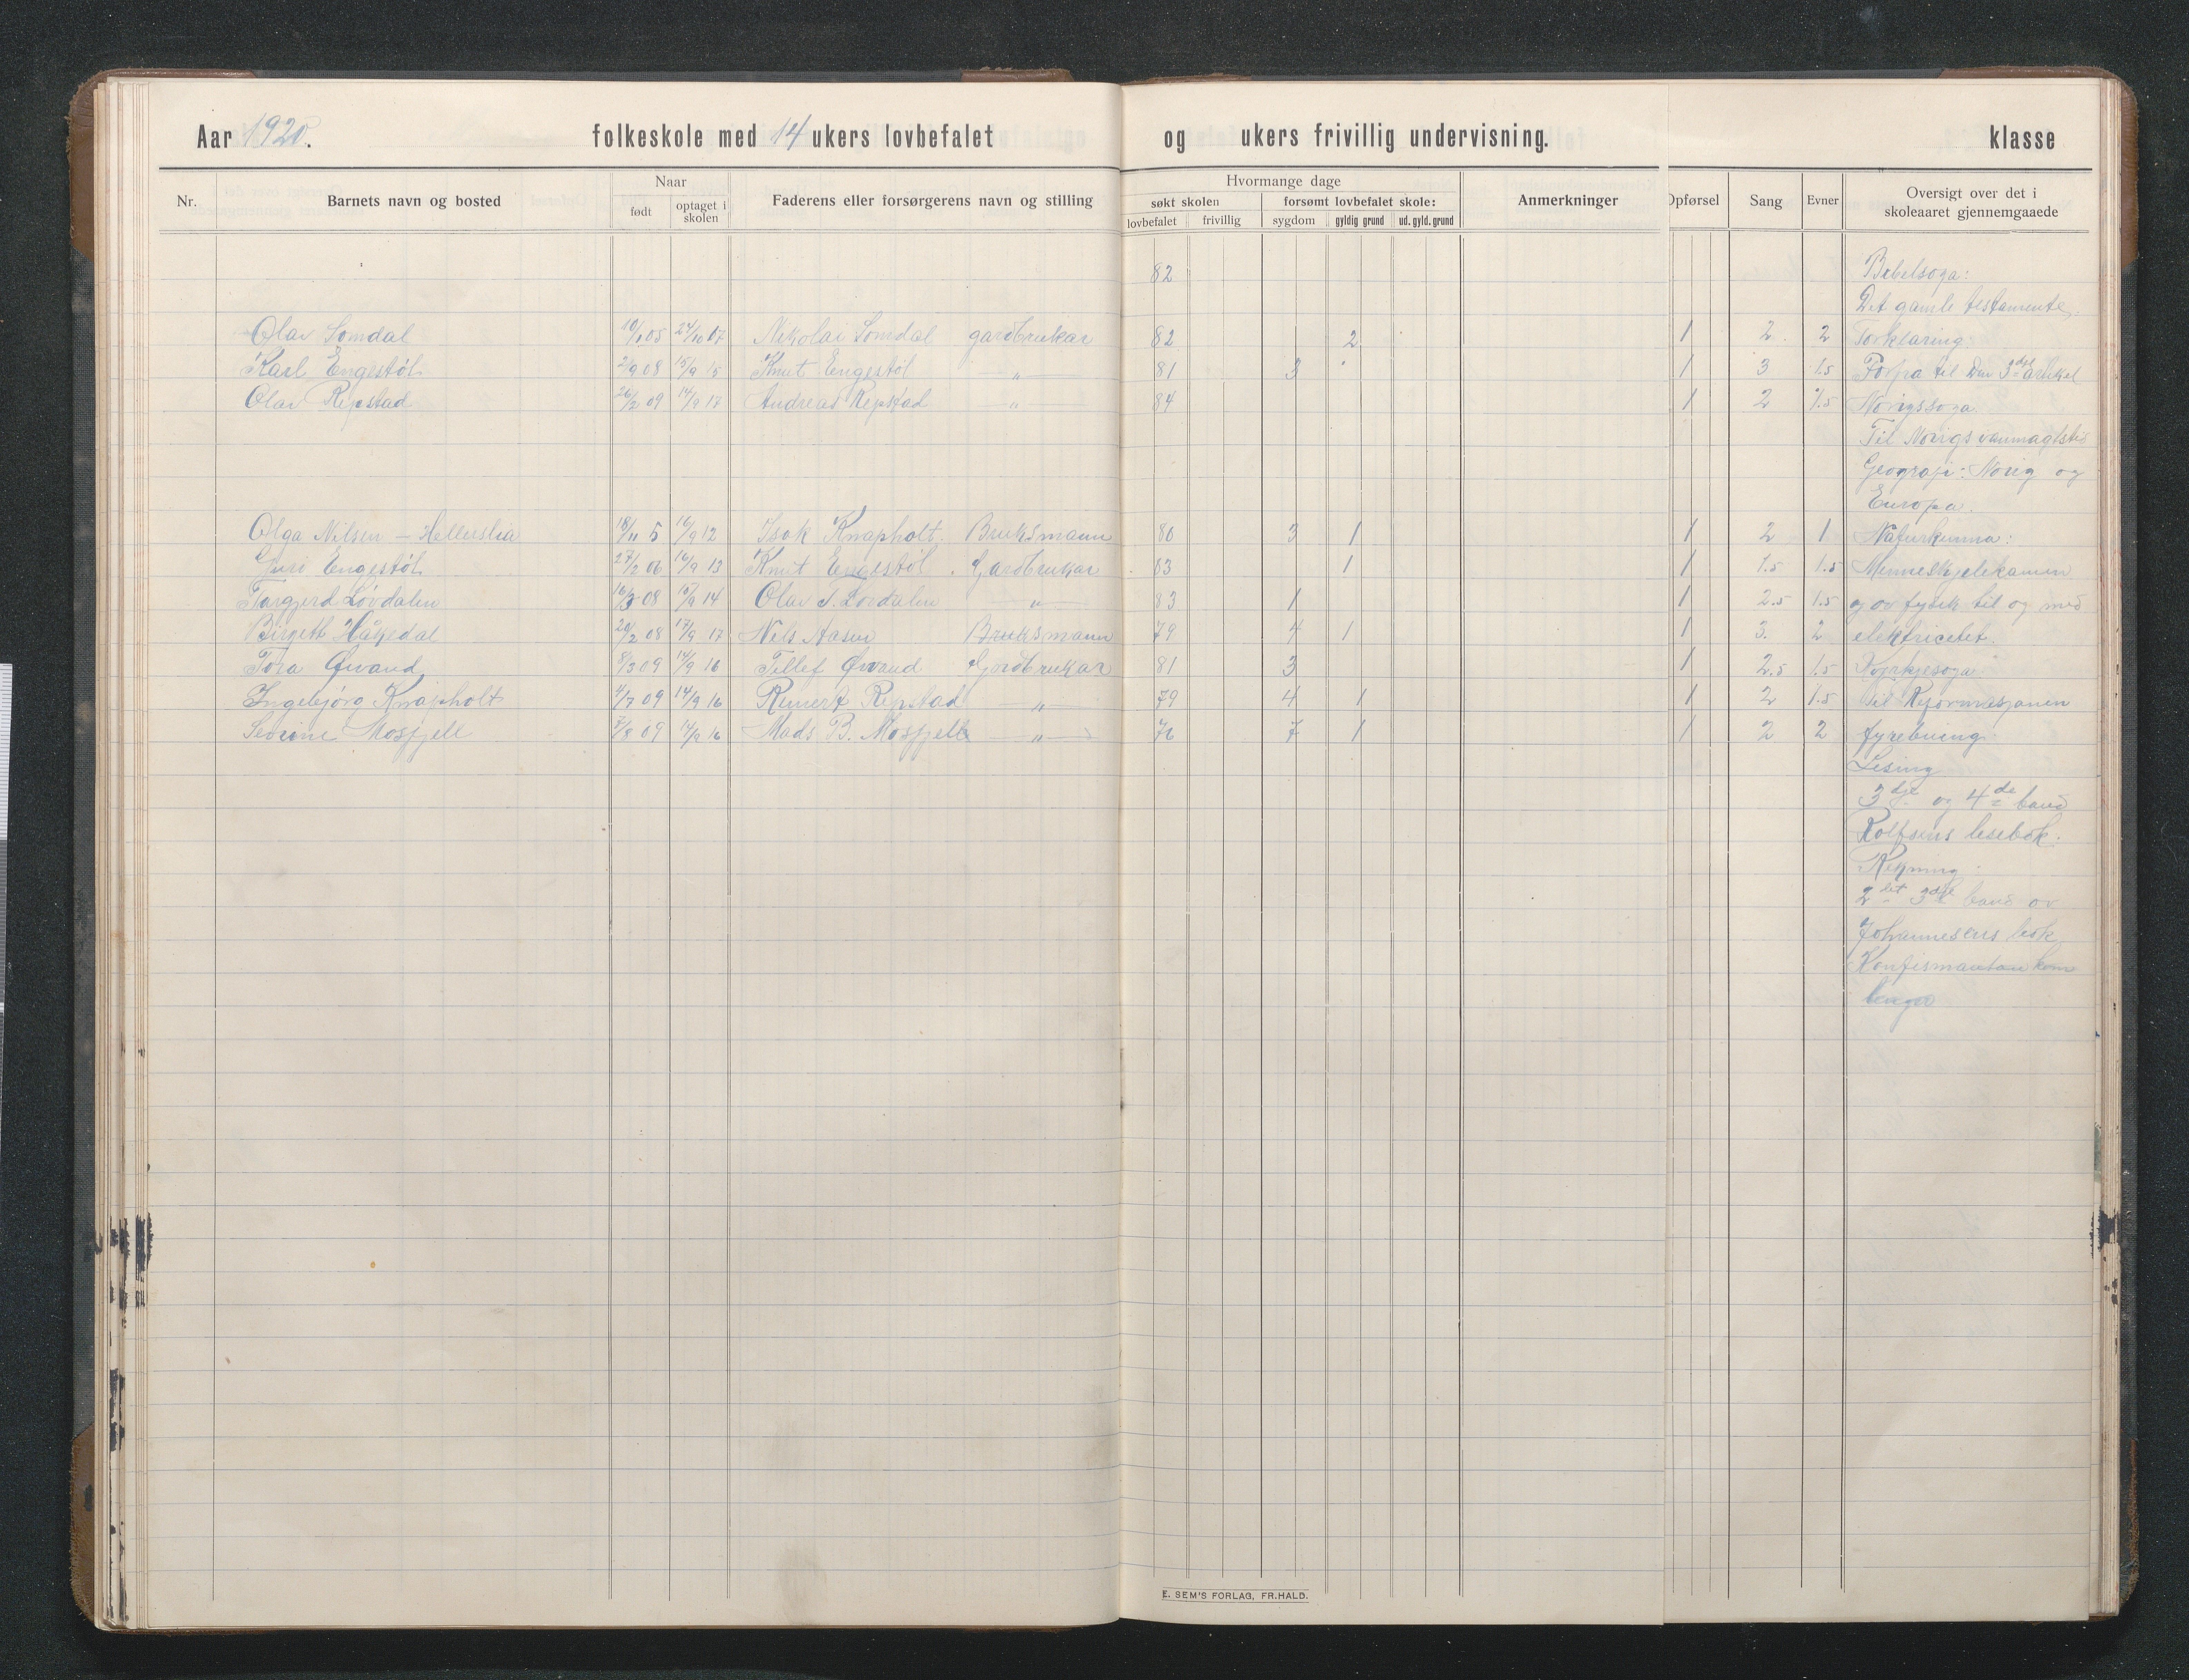 Aar 1920. folkeskole med 14 ukers lovbefalet og ukers frivillig undervisning. klasse
Nr. Barnets navn og bosted Naar født optaget i skolen Faderens eller forsørgerens navn og stilling Hvormange dage søkt skolen lovbefalet frivillig forsømt lovbefalet skole: sygdom gyldig grund ud. gyld. grund Anmerkninger Opførsel Sang Evner Oversigt over det i skoleaaret gjennemgaaede
82 Bibelsoga:
Det gamle testamente.
Olav Somdal 10/1 05 24/10 07 Nikolai Somdal gardbrukar 82 2 1 2 2 Forklaring:
Karl Engestøl 2/9 08 15/9 15 Knut Engestøl —„— 81 3 1 3 1.5 til Den 3dje artikel
Olav Repstad 26/2 09 14/9 17 Andreas Repstad „ 84 1 2 1.5 Norigssoga
Til Norigs vanmagtsti
Geografi: Norig og
Europa.
Olga Nilsen – Hellerslia 18/11 5 16/9 12 Isak Knapholt. Bruksmann 80 3 1 1 2 1 Naturkunna:
Guri Engestøl 27/2 06 16/9 13 Knut Engestøl. Gardbrukar 83 1 1 1.5 1.5 Menneskjelekamen
Torgjerd Løvdalen 16/3 08 15/9 14 Olav T. Løvdalen —„— 83 1 1 2.5 1.5 og av fysik til og med
Birgett Håkedal 20/2 08 17/9 17 Nels Aasen Bruksmann 79 4 1 1 3. 2 elektricetet.
Tora Øvand 8/3 09 14/9 16 Tellef Øvand Gardbrukar 81 3 1 2.5 1.5 Kyrkjesoga
Ingebjørg Knapholt 4/7 09 14/9 16 Reinert Repstad —„— 79 4 1 1 2 1.5 til Reformasjonen
Sevrine Mosfjell 7/8 09 14/9 16 Mads B. Mosfjell —„— 76 7 1 1 2 2 fyrebuing.
Lesing
3dje og 4de band
Rolfsens lesebok.
Rekning:
2det 3dje band av
Johannesens bok
E. SEM'S FORLAG, FR.HALD.